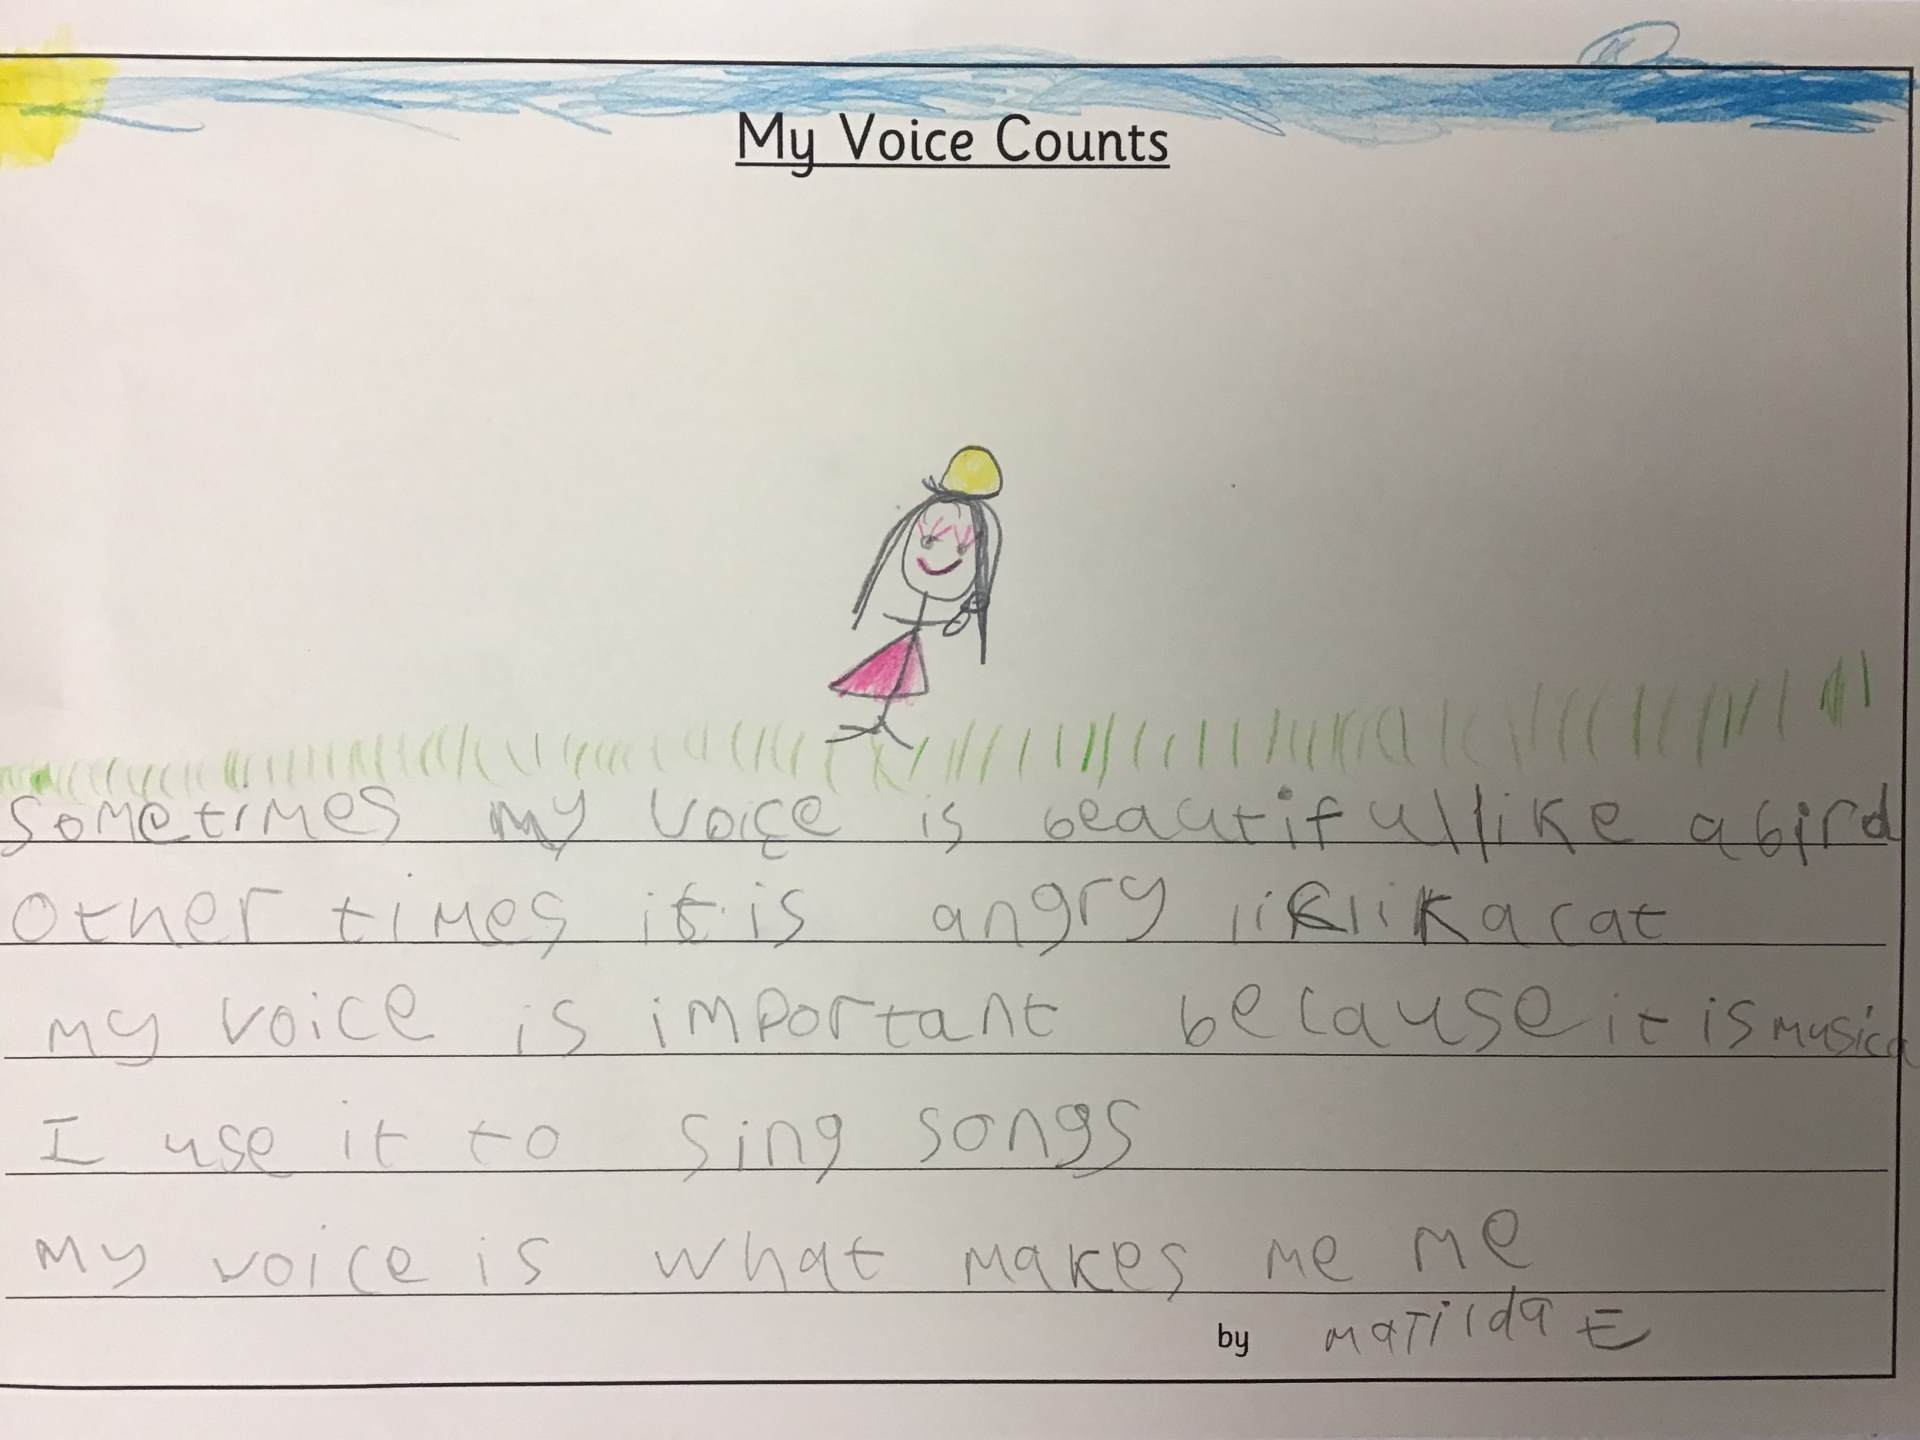 My Voice Counts
sometimes my voice is beautiful like a bird
other times it is angry lik lik a cat
my voice is important because it is musica
I use it to sing songs
my voice is what makes me me
by Matilda E